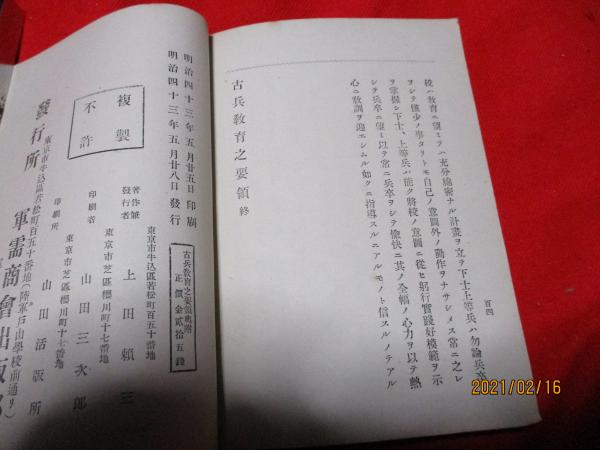 百四
校ハ教育ニ望ミテハ充分綿密ナル計畫ヲ立テ下士上等兵ハ勿論兵卒
ヲシテ僅少ノ事タリトモ自己ノ意圖外ノ動作ヲナサシメス常ニ之レ
ヲ掌握シ下士、上等兵ハ能ク將校ノ意圖ニ從ヒ躬行實踐好模範ヲ示
シテ兵卒ニ望ミ以テ常ニ兵卒ヲシテ愉快ニ其ノ全幅ノ心力ヲ以テ熱
心ニ敎訓ヲ迎エシムル如クニ指導スルニアルモノト信スルノテアル
古兵敎育之要領 終
明治四十三年五月廿五日印刷
明治四十三年五月廿八日發行
古兵敎育之要領奧附
正價金貳拾五錢
複製
不許
東京市牛込區若松町百五十番地
著作兼
發行者 上田賴三
東京市芝區櫻川町十七番地
印刷者 山田三次郎
東京市芝區櫻川町十七番地
印刷所 山田活版所
東京市牛込區若松町百五十番地(陸軍戸山學校前通り)
發行所 軍需商會出版
2021/02/16